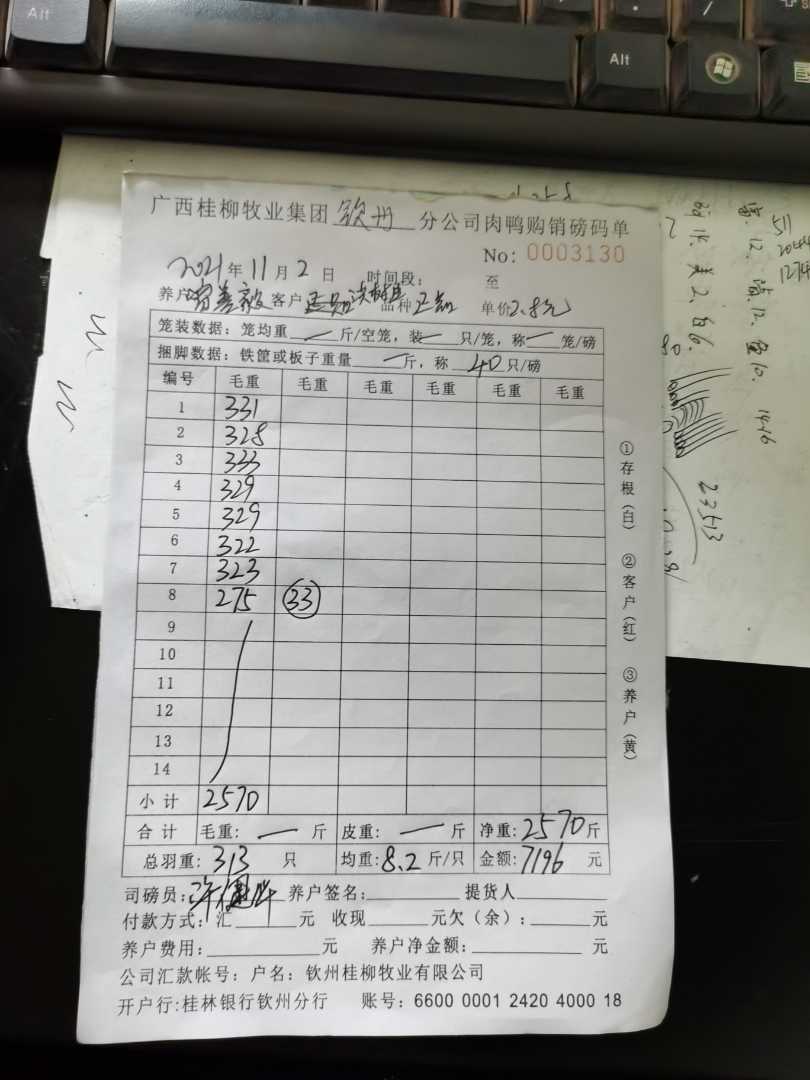 Alt
Alt
广西桂柳牧业集团 钦州 分公司肉鸭购销磅码单
No: 0003130
2021年11月2日 时间段: 至
养户 客户 品种 单价2.8元
笼装数据: 笼均重 一 斤/空笼, 装 一 只/笼, 称 一 笼/磅
捆脚数据: 铁筐或板子重量 一 斤, 称 40 只/磅
编号 毛重 毛重 毛重 毛重 毛重 毛重
1 331
2 328
3 333
4 329
5 329
6 322
7 323
8 275 33
9
10
11
12
13
14
小计 2570
合计 毛重: 一 斤 皮重: 一 斤 净重: 2570 斤
总羽重: 313 只 均重: 8.2 斤/只 金额: 7196 元
司磅员: 养户签名: 提货人
付款方式: 汇 元 收现 元欠(余): 元
养户费用: 元 养户净金额: 元
公司汇款帐号: 户名: 钦州桂柳牧业有限公司
开户行:桂林银行钦州分行 账号: 6600 0001 2420 4000 18
①存根(白) ②客户(红) ③养户(黄)
511
1416
23513